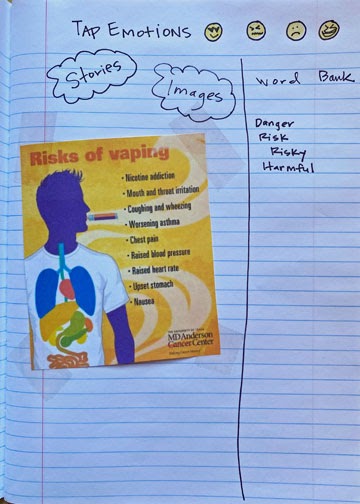 TAP EMOTIONS
Stories
Images
Word Bank
Danger
Risk
Risky
Harmful
Risks of vaping
• Nicotine addiction
• Mouth and throat irritation
• Coughing and wheezing
• Worsening asthma
• Chest pain
• Raised blood pressure
• Raised heart rate
• Upset stomach
• Nausea
THE UNIVERSITY OF TEXAS
MD Anderson
Cancer Center
Making Cancer History